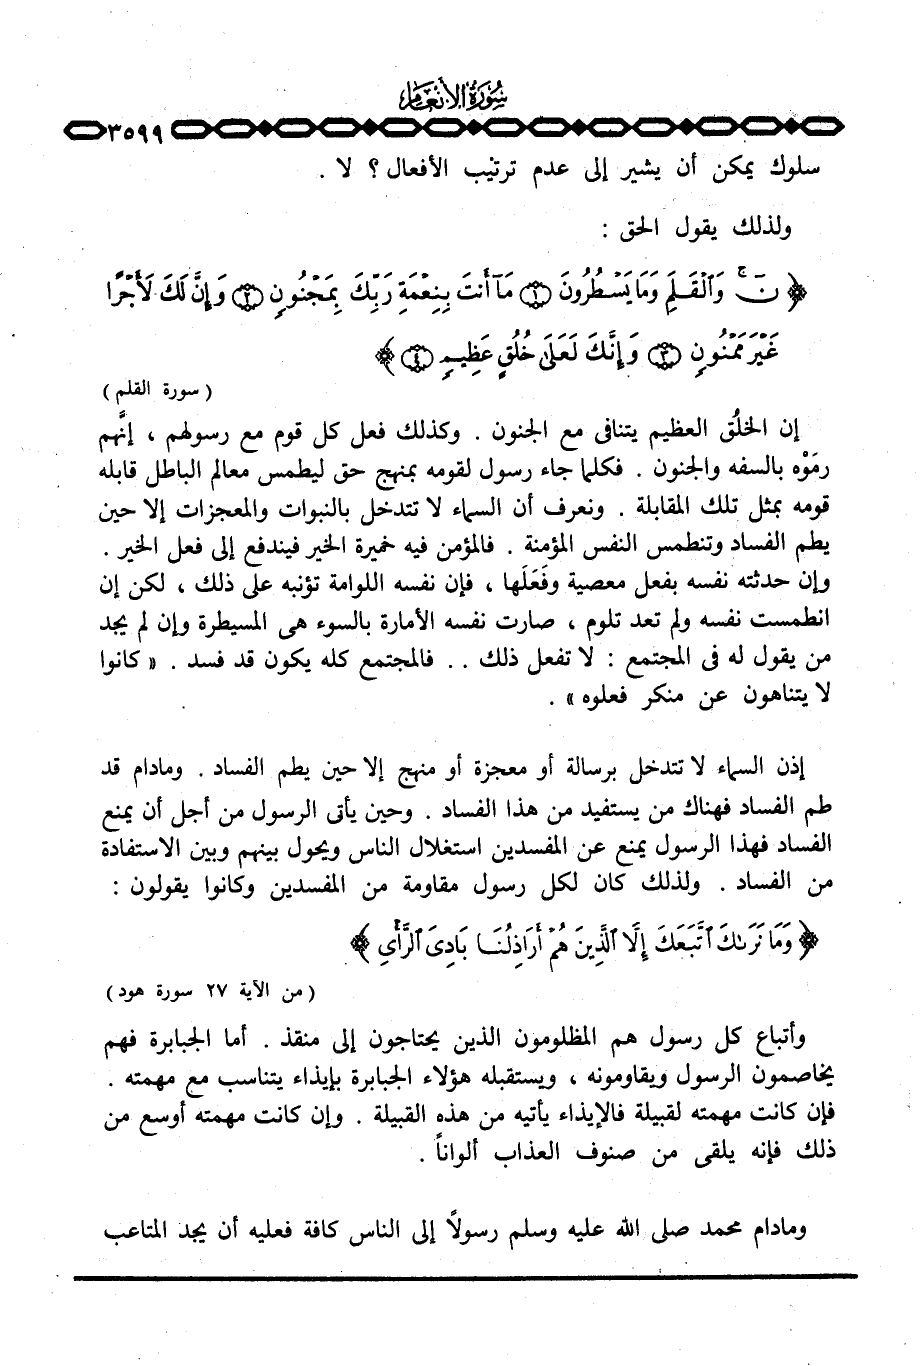 سورة الأنعام
٣٥٩٩
سلوك يمكن أن يشير إلى عدم ترتيب الأفعال ؟ لا .
ولذلك يقول الحق :
﴿ نٓ ۚ وَٱلْقَلَمِ وَمَا يَسْطُرُونَ ١ مَآ أَنتَ بِنِعْمَةِ رَبِّكَ بِمَجْنُونٍ ٢ وَإِنَّ لَكَ لَأَجْرًا
غَيْرَ مَمْنُونٍ ٣ وَإِنَّكَ لَعَلَىٰ خُلُقٍ عَظِيمٍ ٤ ﴾
( سورة القلم )
إن الخلُق العظيم يتنافى مع الجنون . وكذلك فعل كل قوم مع رسولهم ، إنَّهم
رمَوْه بالسفه والجنون . فكلما جاء رسول لقومه بمنهج حق ليطمس معالم الباطل قابله
قومه بمثل تلك المقابلة . ونعرف أن السماء لا تتدخل بالنبوات والمعجزات إلا حين
يطم الفساد وتنطمس النفس المؤمنة . فالمؤمن فيه خميرة الخير فيندفع إلى فعل الخير .
وإن حدثته نفسه بفعل معصية وفَعَلَها ، فإن نفسه اللوامة تؤنبه على ذلك ، لكن إن
انطمست نفسه ولم تعد تلوم ، صارت نفسه الأمارة بالسوء هى المسيطرة وإن لم يجد
من يقول له فى المجتمع : لا تفعل ذلك .. فالمجتمع كله يكون قد فسد . « كانوا
لا يتناهون عن منكر فعلوه » .
إذن السماء لا تتدخل برسالة أو معجزة أو منهج إلا حين يطم الفساد . ومادام قد
طم الفساد فهناك من يستفيد من هذا الفساد . وحين يأتى الرسول من أجل أن يمنع
الفساد فهذا الرسول يمنع عن المفسدين استغلال الناس ويحول بينهم وبين الاستفادة
من الفساد . ولذلك كان لكل رسول مقاومة من المفسدين وكانوا يقولون :
﴿ وَمَا نَرَىٰكَ ٱتَّبَعَكَ إِلَّا ٱلَّذِينَ هُمْ أَرَاذِلُنَا بَادِىَ ٱلرَّأْىِ ﴾
( من الآية ٢٧ سورة هود )
وأتباع كل رسول هم المظلومون الذين يحتاجون إلى منقذ . أما الجبابرة فهم
يخاصمون الرسول ويقاومونه ، ويستقبله هؤلاء الجبابرة بإيذاء يتناسب مع مهمته .
فإن كانت مهمته لقبيلة فالإيذاء يأتيه من هذه القبيلة . وإن كانت مهمته أوسع من
ذلك فإنه يلقى من صنوف العذاب ألواناً .
ومادام محمد صلى الله عليه وسلم رسولاً إلى الناس كافة فعليه أن يجد المتاعب